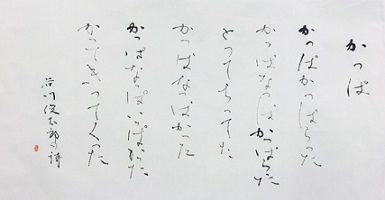 かっぱ
かっぱかっぱらった
かっぱらっぱかっぱらった
とってちってた
かっぱなっぱかった
かっぱなっぱいっぱかった
かってきってくった
谷川俊太郎の詩